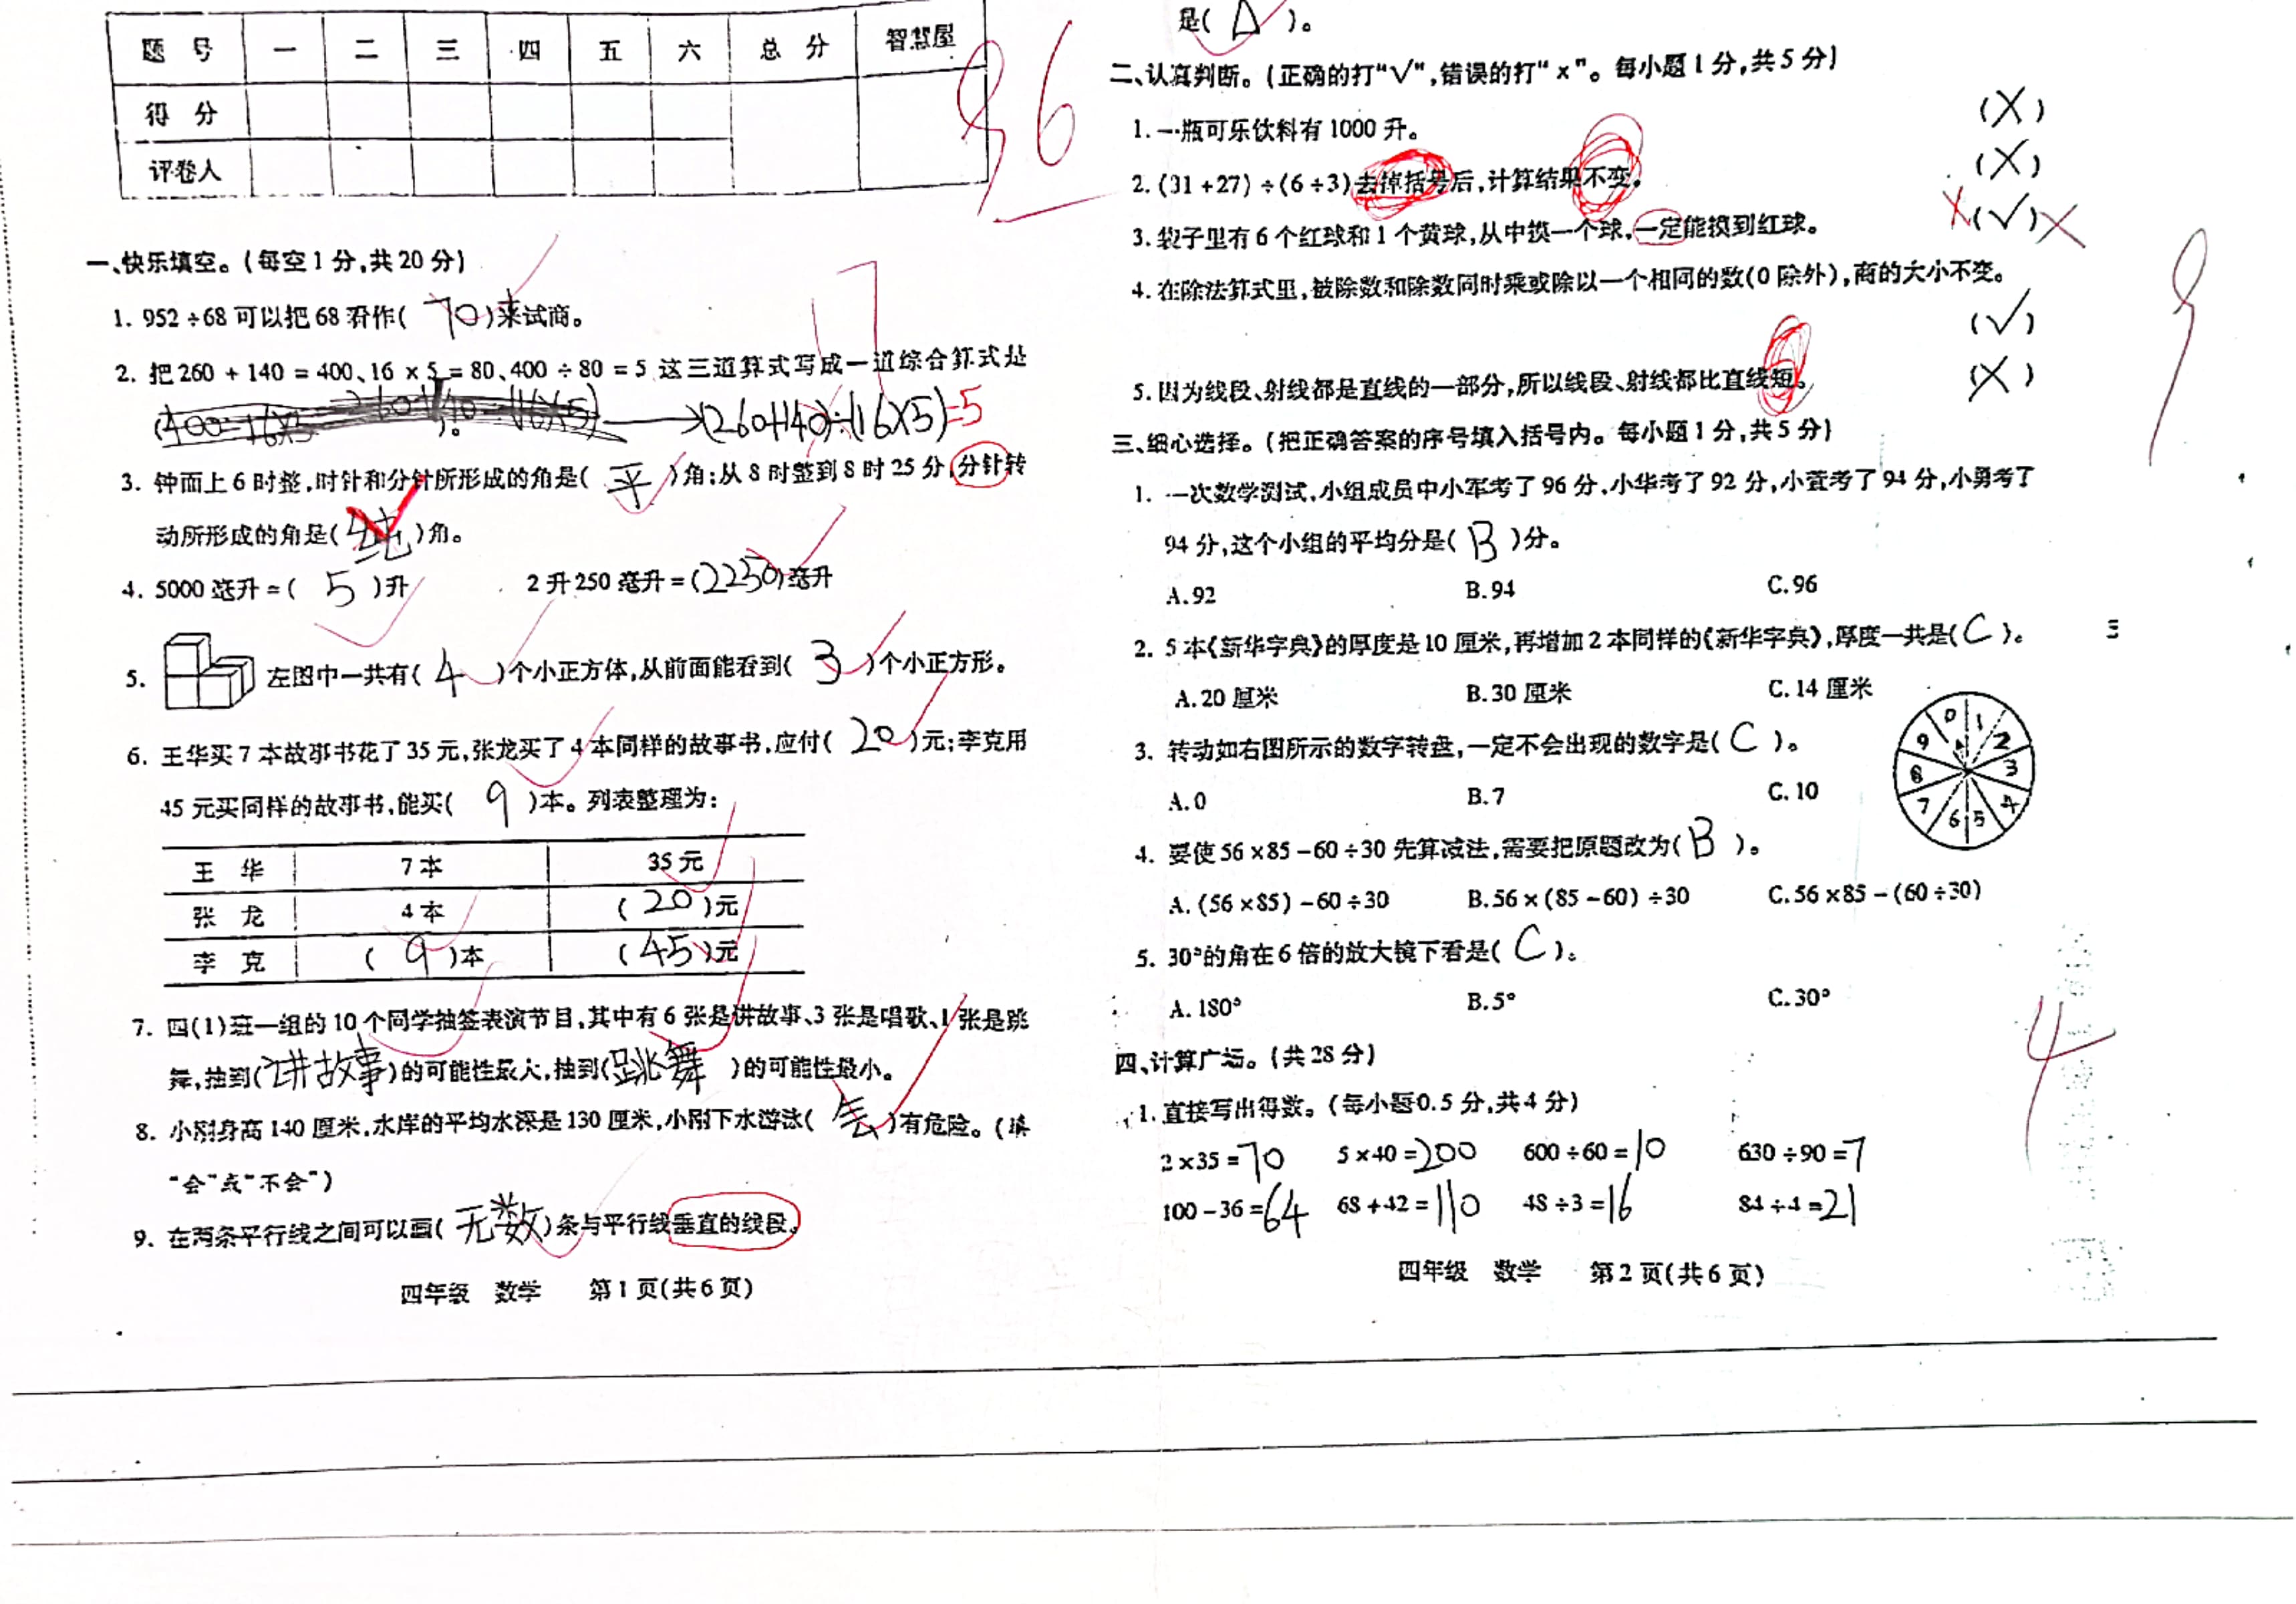 题 号 一 二 三 四 五 六 总 分 智慧屋
得 分
评卷人
86
一、快乐填空。(每空1分,共20分)
1. 952÷68可以把68看作( 70 )来试商。
2. 把260+140=400、16×5=80、400÷80=5 这三道算式写成一道综合算式是
(260+140)÷(16×5)=5
)。
3. 钟面上6时整,时针和分针所形成的角是( 平 )角;从8时整到8时25分,分针转
动所形成的角是( 钝 )角。
4. 5000毫升=( 5 )升 2升250毫升=(2250)毫升
5. 左图中一共有( 4 )个小正方体,从前面能看到( 3 )个小正方形。
6. 王华买7本故事书花了35元,张龙买了4本同样的故事书,应付( 20 )元;李克用
45元买同样的故事书,能买( 9 )本。列表整理为:
王 华 7本 35元
张 龙 4本 ( 20 )元
李 克 ( 9 )本 ( 45 )元
7. 四(1)班一组的10个同学抽签表演节目,其中有6张是讲故事、3张是唱歌、1张是跳
舞,抽到(讲故事)的可能性最大,抽到(跳舞 )的可能性最小。
8. 小刚身高140厘米,水库的平均水深是130厘米,小刚下水游泳( 会 )有危险。(填
“会”或“不会”)
9. 在两条平行线之间可以画( 无数 )条与平行线垂直的线段。
四年级 数学 第1页(共6页)
是( )。
二、认真判断。(正确的打“√”,错误的打“×”。每小题1分,共5分)
1. 一瓶可乐饮料有1000升。 (×)
2. (31+27)÷(6÷3)去掉括号后,计算结果不变。 (×)
3. 袋子里有6个红球和1个黄球,从中摸一个球,一定能摸到红球。 ×(√)×
4. 在除法算式里,被除数和除数同时乘或除以一个相同的数(0除外),商的大小不变。
(√)
5. 因为线段、射线都是直线的一部分,所以线段、射线都比直线短。 (×)
三、细心选择。(把正确答案的序号填入括号内。每小题1分,共5分)
1. 一次数学测试,小组成员中小军考了96分,小华考了92分,小萱考了94分,小勇考了
94分,这个小组的平均分是( B )分。
A. 92 B. 94 C. 96
2. 5本《新华字典》的厚度是10厘米,再增加2本同样的《新华字典》,厚度一共是( C )。
A. 20厘米 B. 30厘米 C. 14厘米
3. 转动如右图所示的数字转盘,一定不会出现的数字是( C )。
A. 0 B. 7 C. 10
0 1 2 3 4 5 6 7 8 9
4. 要使56×85-60÷30先算减法,需要把原题改为( B )。
A. (56×85)-60÷30 B. 56×(85-60)÷30 C. 56×85-(60÷30)
5. 30°的角在6倍的放大镜下看是( C )。
A. 180° B. 5° C. 30°
四、计算广场。(共28分)
4
1. 直接写出得数。(每小题0.5分,共4分)
2×35=70 5×40=200 600÷60=10 630÷90=7
100-36=64 68+42=110 48÷3=16 84÷4=21
四年级 数学 第2页(共6页)